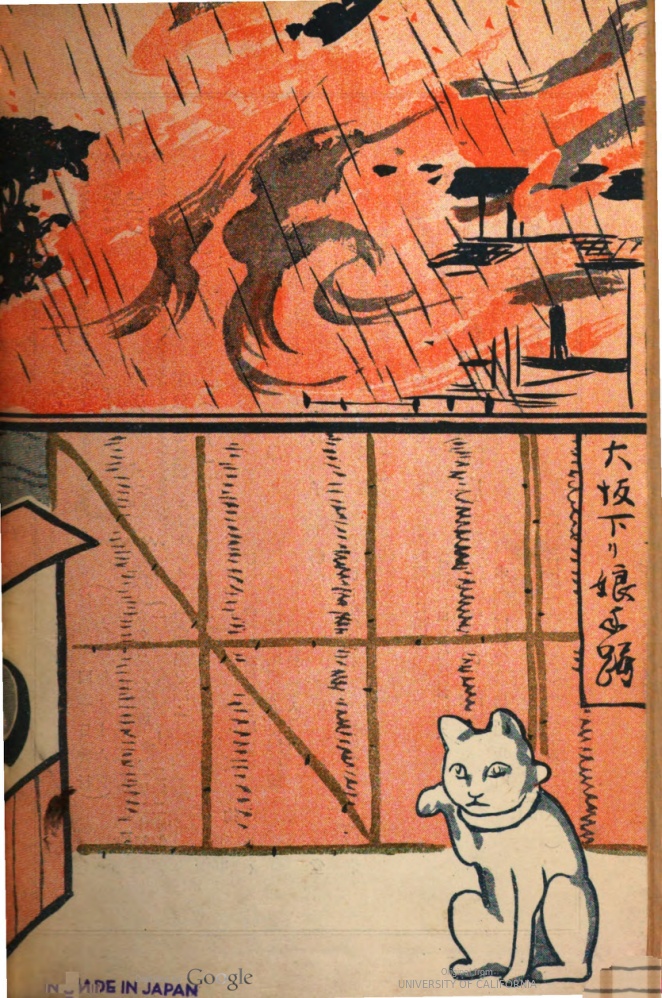 大坂下り娘手踊
MADE IN JAPAN
Google
Original from
UNIVERSITY OF CALIFORNIA